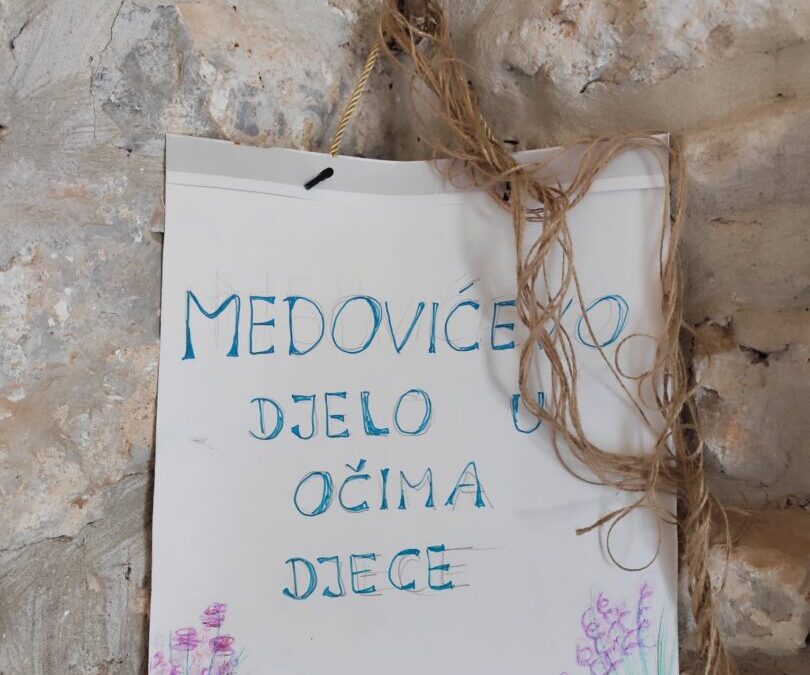 MEDOVIĆEVO
DJELO U
OČIMA
DJECE